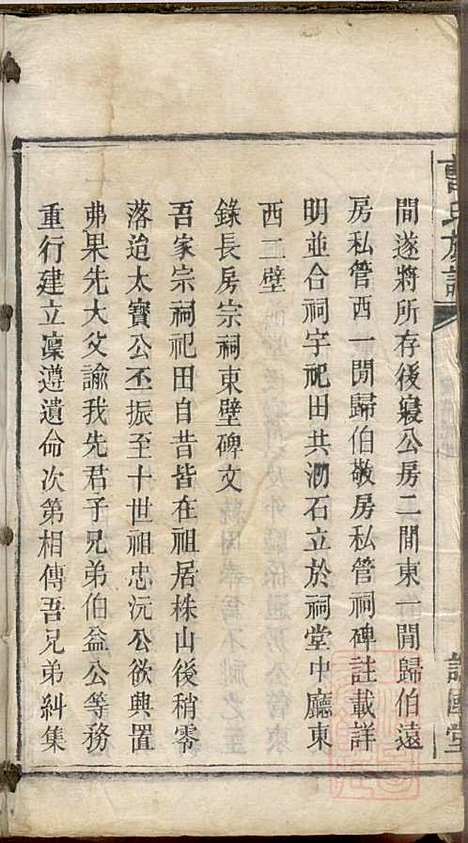 間遂將所存後寢公房二間東一間歸伯遠
房私管西一間歸伯敬房私管祠碑註載詳
明並合祠宇祀田共泐石立於祠堂中廳東
西二壁
錄長房宗祠東壁碑文
吾家宗祠祀田自昔皆在祖居株山後稍零
落迨太寶公丕振至十世祖忠沅公欲興置
弗果先大父諭我先君子兄弟伯益公等務
重行建立凜遵遺命次第相傳吾兄弟糾集